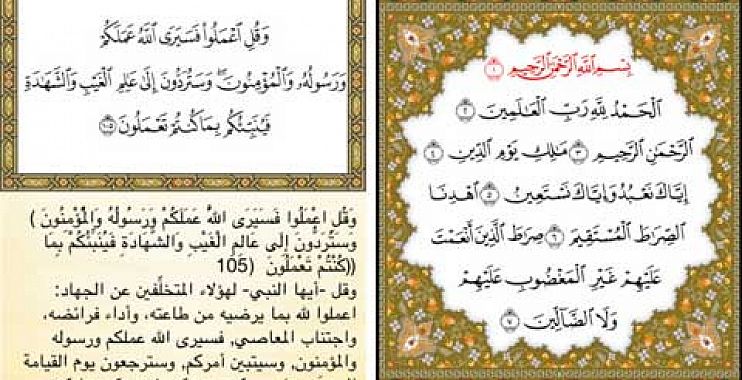 وَقُلِ اعْمَلُوا۟ فَسَيَرَى اللَّهُ عَمَلَكُمْ
وَرَسُولُهُۥ وَالْمُؤْمِنُونَ ۖ وَسَتُرَدُّونَ إِلَىٰ عَالِمِ الْغَيْبِ وَالشَّهَادَةِ
فَيُنَبِّئُكُم بِمَا كُنتُمْ تَعْمَلُونَ ١٠٥
وَقُلِ اعْمَلُوا فَسَيَرَى اللَّهُ عَمَلَكُمْ وَرَسُولُهُ وَالْمُؤْمِنُونَ )
وَسَتُرَدُّونَ إِلَى عَالِمِ الْغَيْبِ وَالشَّهَادَةِ فَيُنَبِّئُكُمْ بِمَا
((كُنْتُمْ تَعْمَلُونَ (105
وقل -أيها النبي- لهؤلاء المتخلِّفين عن الجهاد:
اعملوا لله بما يرضيه من طاعته، وأداء فرائضه،
واجتناب المعاصي, فسيرى الله عملكم ورسوله
والمؤمنون, وسيتبين أمركم, وسترجعون يوم القيامة
بِسْمِ اللَّهِ الرَّحْمَٰنِ الرَّحِيمِ ١
الْحَمْدُ لِلَّهِ رَبِّ الْعَالَمِينَ ٢
الرَّحْمَٰنِ الرَّحِيمِ ٣ مَالِكِ يَوْمِ الدِّينِ ٤
إِيَّاكَ نَعْبُدُ وَإِيَّاكَ نَسْتَعِينُ ٥ اهْدِنَا
الصِّرَاطَ الْمُسْتَقِيمَ ٦ صِرَاطَ الَّذِينَ أَنْعَمْتَ
عَلَيْهِمْ غَيْرِ الْمَغْضُوبِ عَلَيْهِمْ
وَلَا الضَّالِّينَ ٧